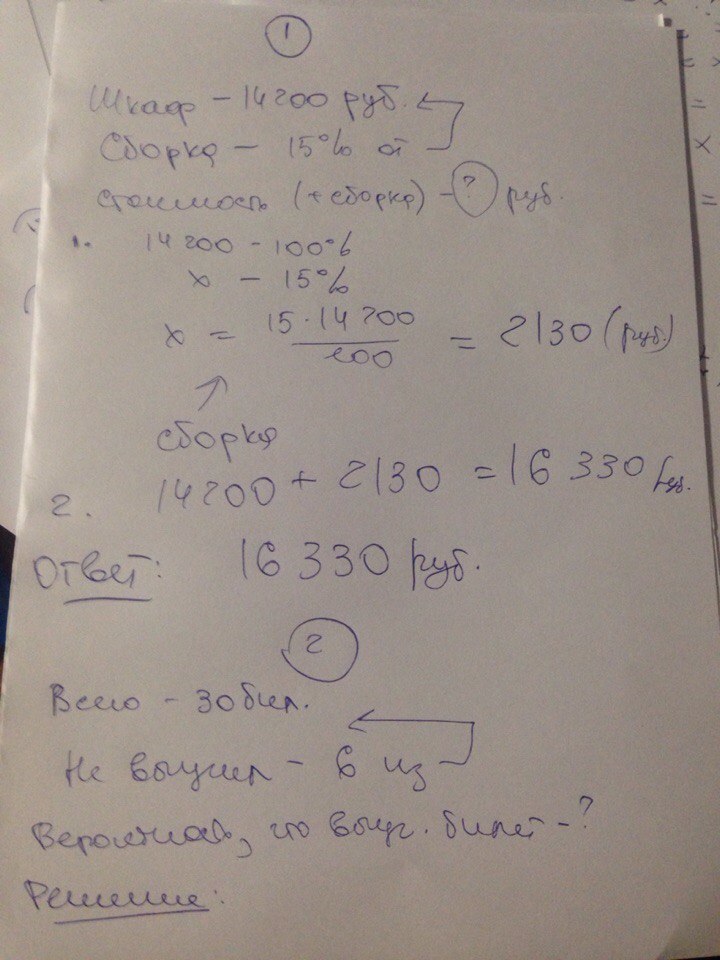 1
Шкаф – 14200 руб.
Сборка – 15% от
стоимость (+ сборка) – ? руб.
1. 14200 – 100%
x – 15%
x = 15 · 14200 / 100 = 2130 (руб.)
сборка
2. 14200 + 2130 = 16 330 руб.
Ответ: 16 330 руб.
2
Всего – 30 бил.
Не выучил – 6 из
Вероятность, что выуч. билет – ?
Решение: